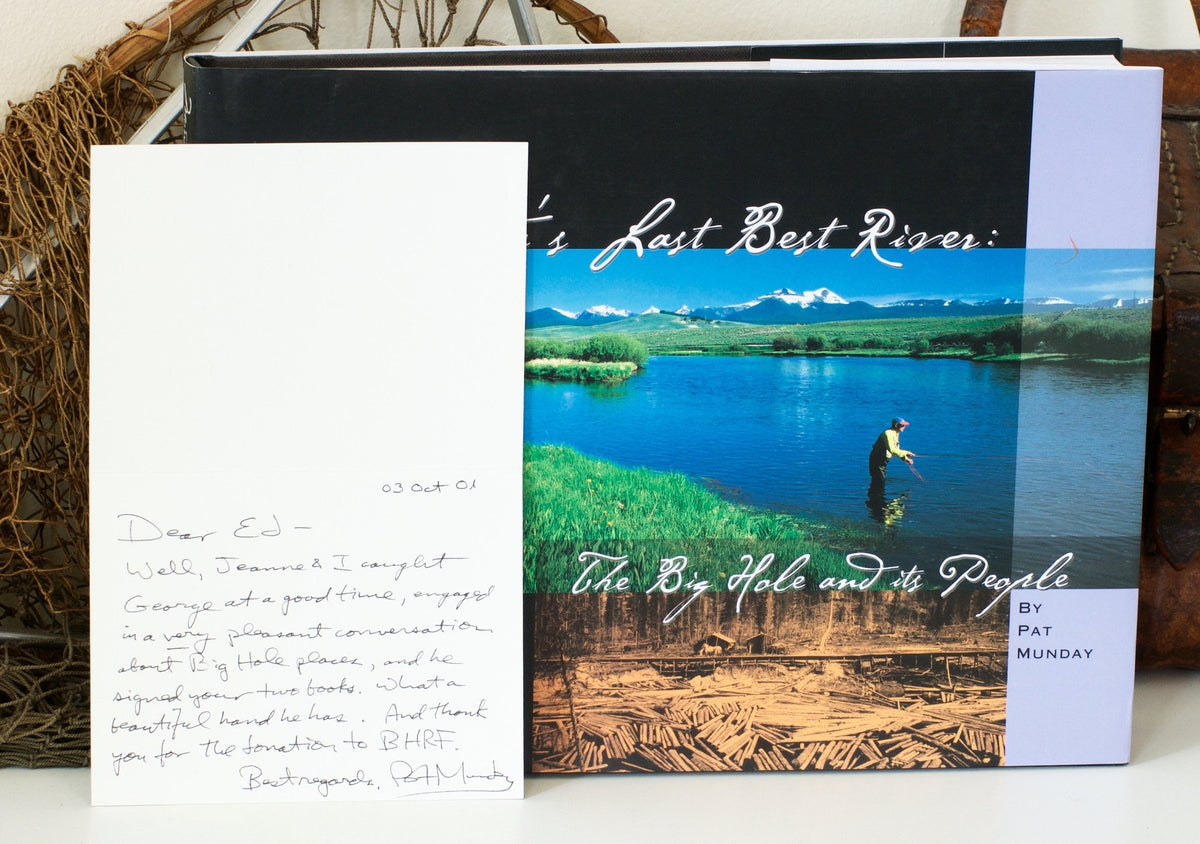 's Last Best River:
The Big Hole and its People
BY
PAT
MUNDAY
03 Oct 01
Dear Ed –
Well, Jeanne & I caught
George at a good time, engaged
in a very pleasant conversation
about Big Hole places, and he
signed your two books. What a
beautiful hand he has. And thank
you for the donation to BHRF.
Best regards, Pat Munday